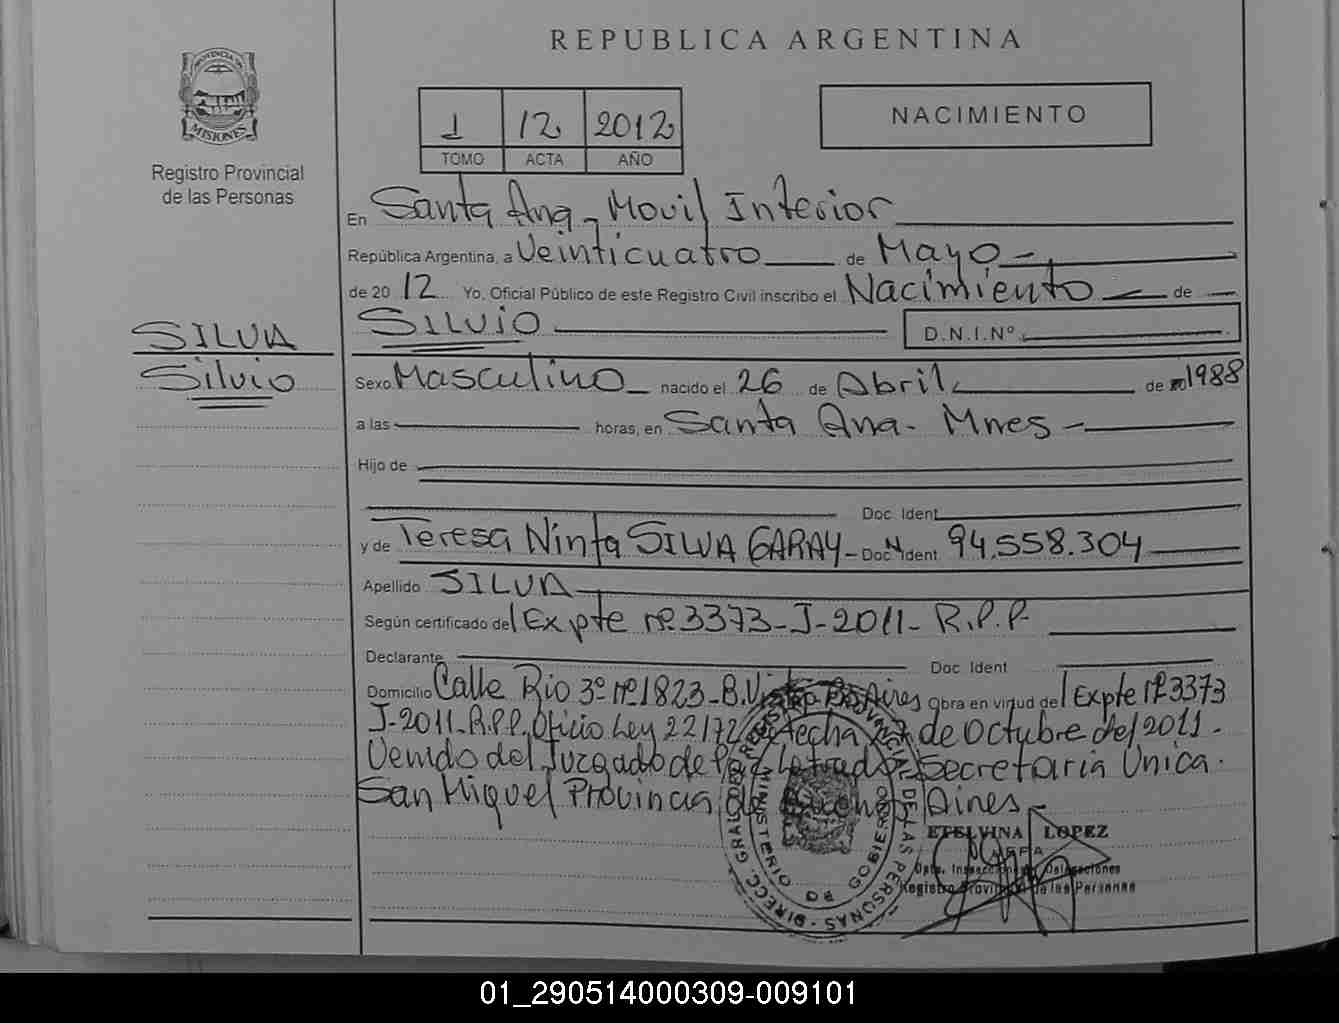 REPUBLICA ARGENTINA
PROVINCIA DE
MISIONES
Registro Provincial
de las Personas
1 12 2012
TOMO ACTA AÑO
NACIMIENTO
En Santa Ana - Movil Interior
República Argentina, a Veinticuatro de Mayo
de 2012 Yo, Oficial Público de este Registro Civil inscribo el Nacimiento de
SILVIO D.N.I.Nº
SILVA
Silvio
Sexo Masculino nacido el 26 de Abril de 1988
a las horas, en Santa Ana - Mnes -
Hijo de
Doc. Ident.
y de Teresa Ninfa SILVA GARAY - Doc. Ident. Nº 94.558.304
Apellido SILVA
Según certificado del Expte nº 3373-J-2011- R.P.P-
Declarante Doc. Ident
Domicilio Calle Rio 3º nº 1823 - B. Bs Aires Obra en virtud del Expte nº 3373
J-2011-R.P.P. Oficio Ley 22172 fecha de Octubre del 2011.
Venido del Juzgado de Paz Letrado Secretaria Unica.
San Miguel Provincia de Buenos Aires -
DIRECC. GRAL. DE REGISTRO PROVINCIAL DE LAS PERSONAS
MINISTERIO DE GOBIERNO
ETELVINA LOPEZ
JEFA
Dpto. Inspección de Delegaciones
Registro Provincial de las Personas
01_290514000309-009101